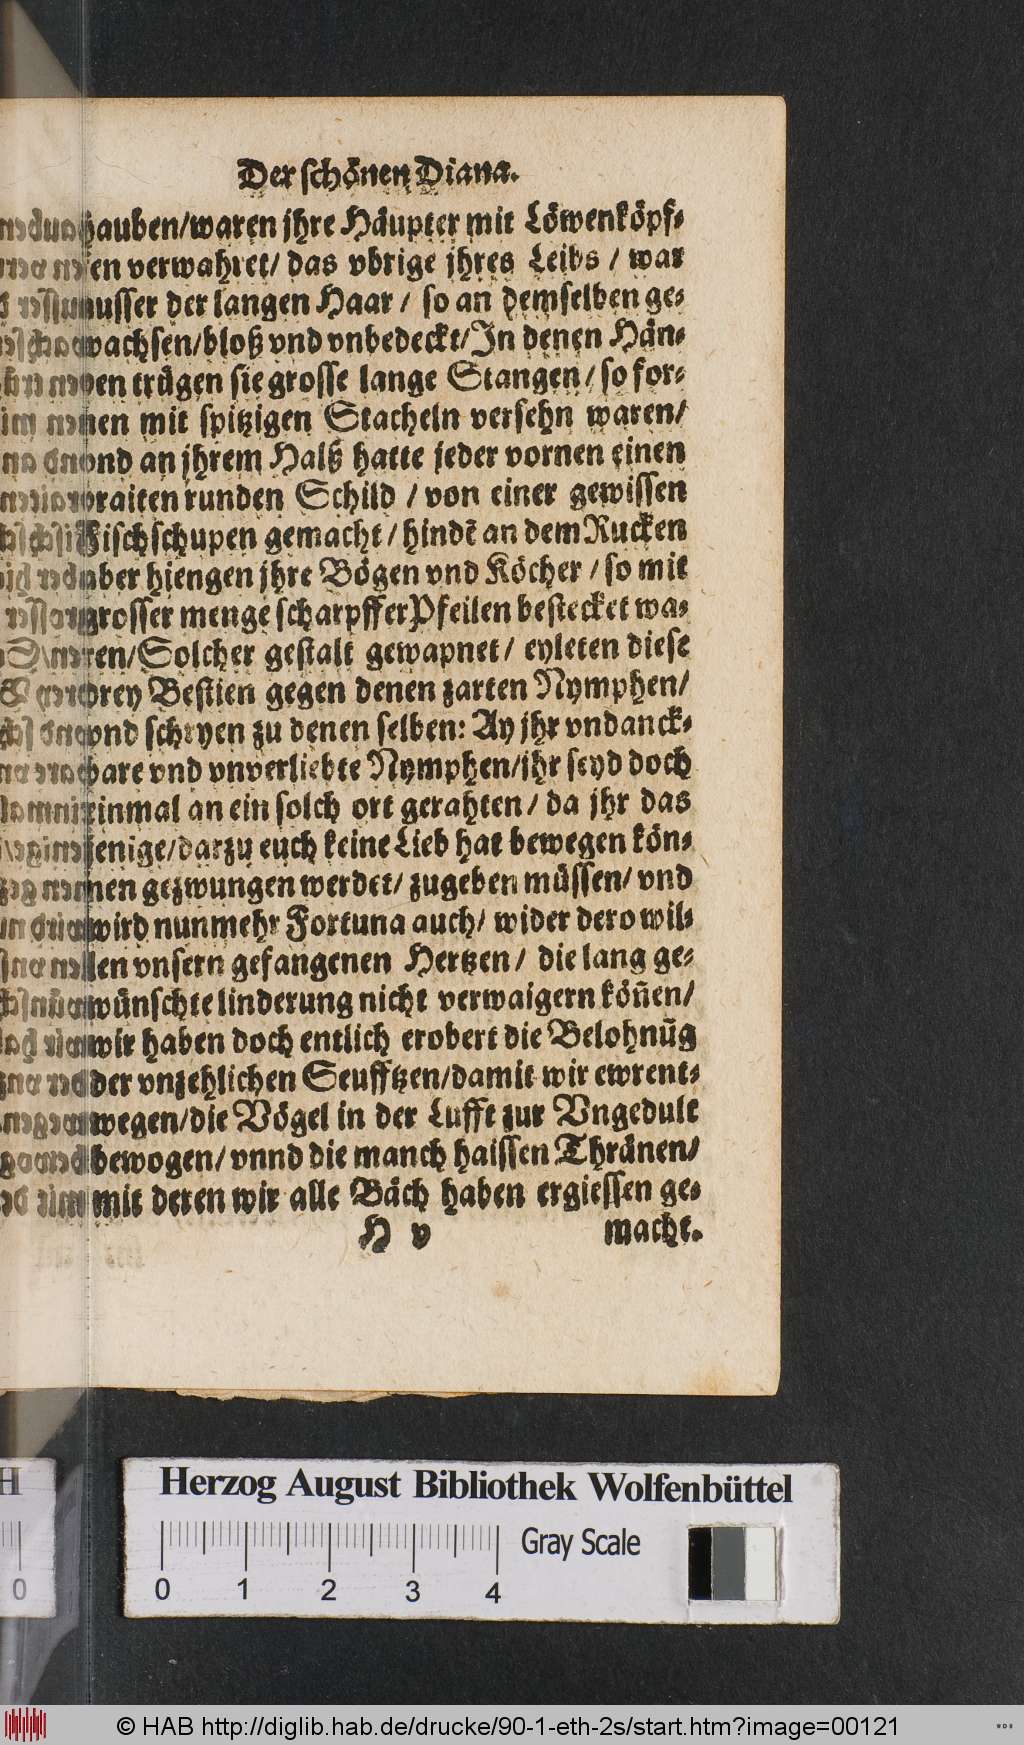 Der schönen Diana.
hauben/waren jhre Häupter mit Löwenköpf-
en verwahret/ das vbrige jhres Leibs / war
ausser der langen Haar / so an demselben ge-
wachsen/bloß vnd vnbedeckt/In denen Hän-
den trügen sie grosse lange Stangen/ so for-
nen mit spitzigen Stacheln versehn waren/
vnd an jhrem Halß hatte jeder vornen einen
braiten runden Schild / von einer gewissen
Fischschupen gemacht / hindẽ an dem Rucken
aber hiengen jhre Bögen vnd Köcher / so mit
grosser menge scharpffer Pfeilen bestecket wa-
ren/Solcher gestalt gewapnet / eyleten diese
drey Bestien gegen denen zarten Nymphen/
vnd schryen zu denen selben: Ay jhr vndanck-
bare vnd vnverliebte Nymphen/jhr seyd doch
einmal an ein solch ort gerahten / da jhr das
jenige/darzu euch keine Lieb hat bewegen kön-
nen gezwungen werdet/ zugeben müssen/ vnd
wird nunmehr Fortuna auch/ wider dero wil-
len vnsern gefangenen Hertzen / die lang ge-
wünschte linderung nicht verwaigern köñen/
wir haben doch entlich erobert die Belohnũg
der vnzehlichen Seufftzen/damit wir ewrent-
wegen/die Vögel in der Lufft zur Vngedult
bewogen/ vnnd die manch haissen Thränen/
mit deren wir alle Bäch haben ergiessen ge-
H v macht.
H
Herzog August Bibliothek Wolfenbüttel
Gray Scale
0
0 1 2 3 4
© HAB http://diglib.hab.de/drucke/90-1-eth-2s/start.htm?image=00121